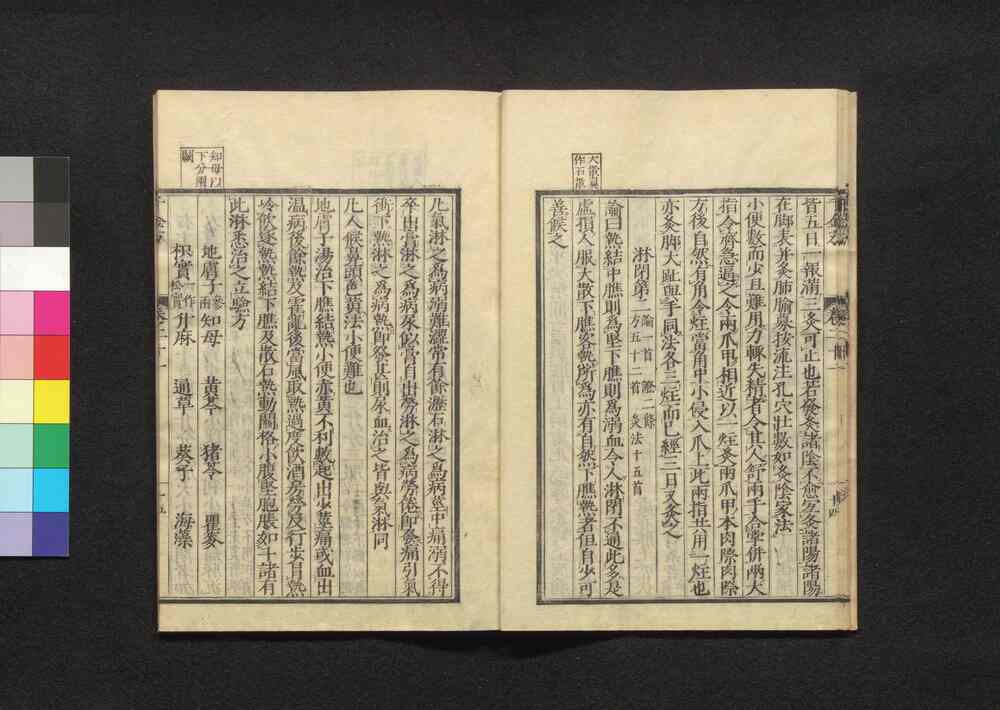 大散異
作石散
皆五日一報滿三灸可止也若發灸諸陰不愈宜灸諸陽諸陽
在脚表并灸肺腧募按流注孔穴壯數如灸陰家法
小便數而少且難用力輒失精者令其人舒兩手合掌併兩大
指令齊急逼之令兩爪甲相近以一炷灸兩爪甲本肉際肉際
方後自然有角令炷當角中小侵入爪上此兩指共用一炷也
亦灸脚大趾與手同法各三炷而已經三日又灸之
淋閉第二 論一首 證二條 方五十二首 灸法十五首
論曰熱結中膲則爲堅下膲則爲溺血令人淋閉不通此多是
虛損人服大散下膲客熱所爲亦有自然下膲熱者但自少可
善候之
知母以
下分兩
闕
凡氣淋之爲病溺難澀常有餘瀝石淋之爲病莖中痛溺不得
卒出膏淋之爲病尿似膏自出勞淋之爲病勞倦即發痛引氣
衝下熱淋之爲病熱即發甚則尿血治之皆與氣淋同
凡人候鼻頭色黃法小便難也
地膚子湯治下膲結熱小便赤黃不利數起出少莖痛或血出
温病後餘熱及霍亂後當風取熱過度飲酒房勞及行步冒熱
冷飲逐熱熱結下膲及散石熱動關格小腹堅胞脹如斗諸有
此淋悉治之立驗方
地膚子 參兩 知母 黃芩 猪苓 瞿麥
枳實 一作松實 升麻 通草 葵子 海藻